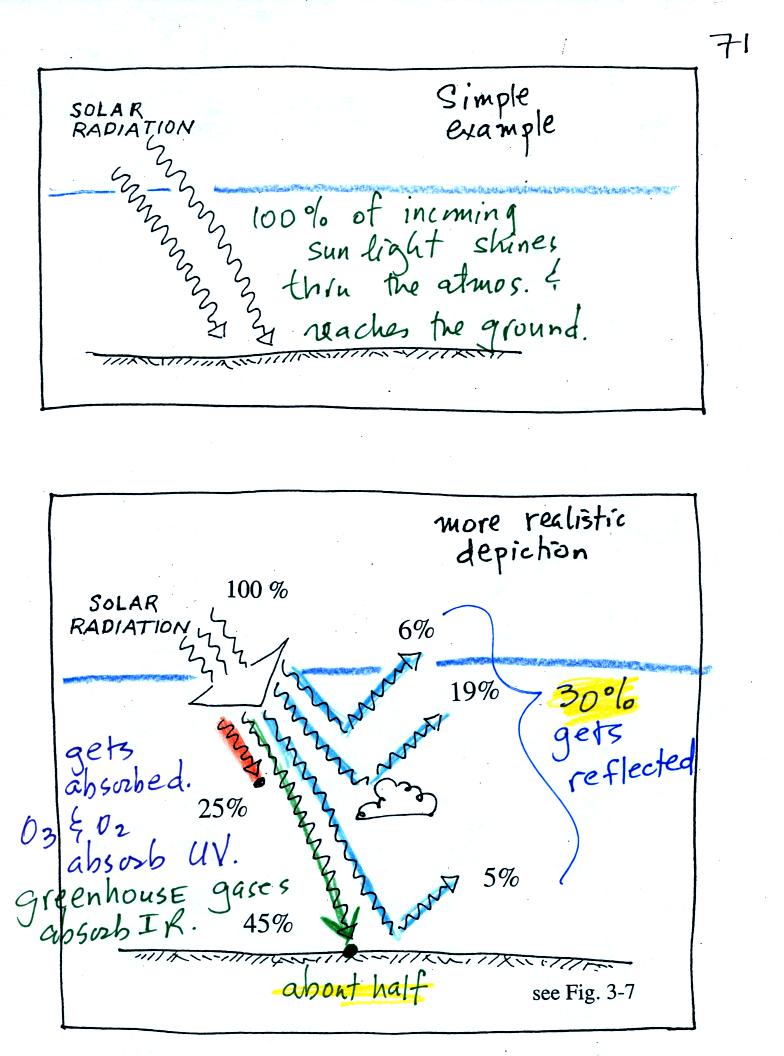 71
SOLAR
RADIATION
Simple
example
100% of incoming
sun light shines
thru the atmos. &
reaches the ground.
more realistic
depiction
100 %
SOLAR
RADIATION
6%
19%
30%
gets
reflected
gets
absorbed.
25%
O3 & O2
absorb UV.
greenhouse gases
absorb IR.
5%
45%
about half
see Fig. 3-7